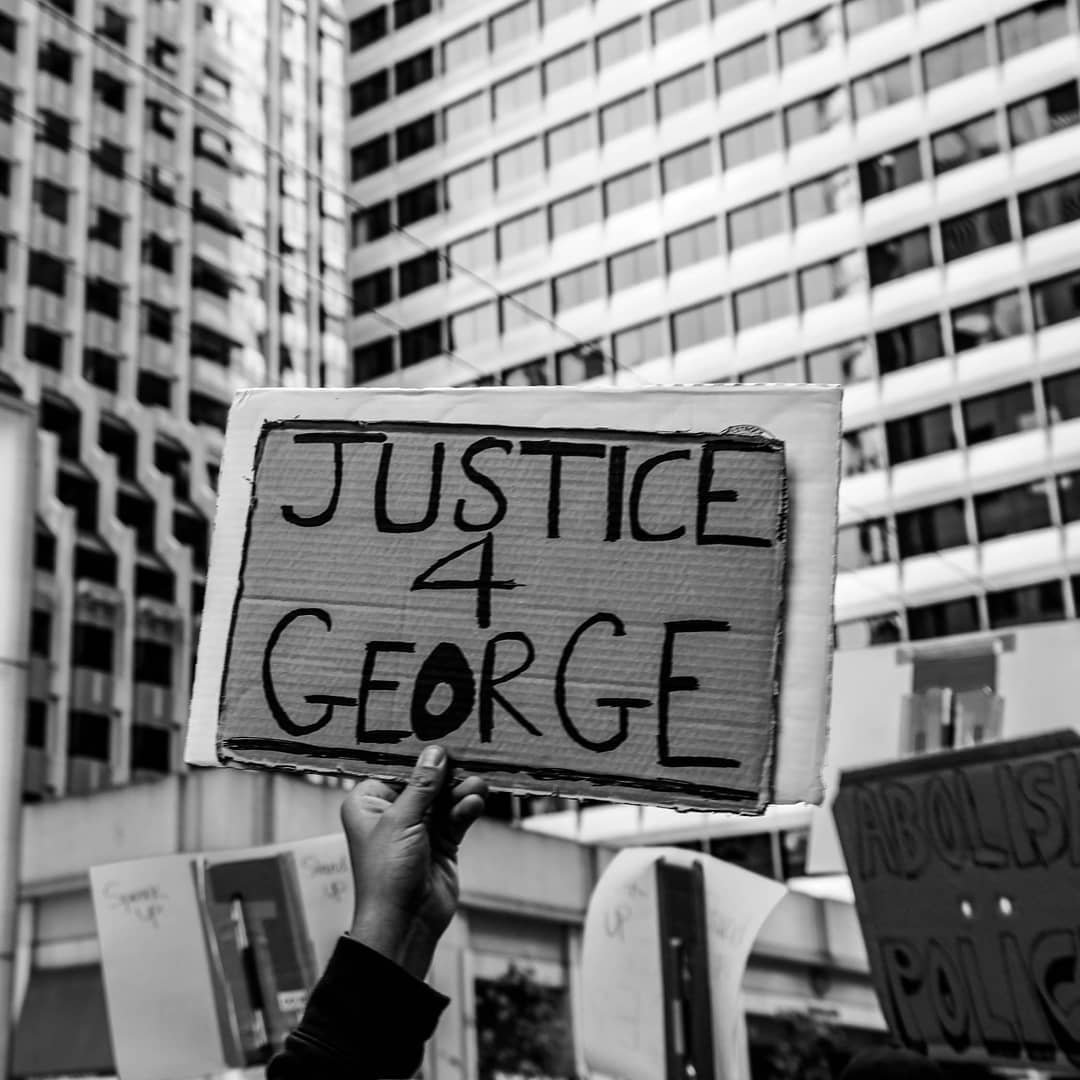 JUSTICE
4
GEORGE
Speak
up
Stand
up
UP
ABOLISH
POLICE